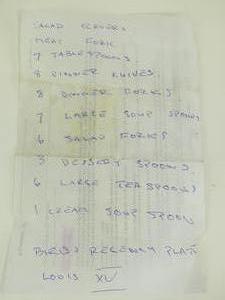 SALAD SERVERS
MEAT FORK
7 TABLESPOONS
8 DINNER KNIVES
8 DINNER FORKS
7 LARGE SOUP SPOONS
6 SALAD FORKS
3 DESSERT SPOONS
6 LARGE TEASPOONS
1 CREAM SOUP SPOON
BIRKS REGENCY PLATE
LOUIS XV